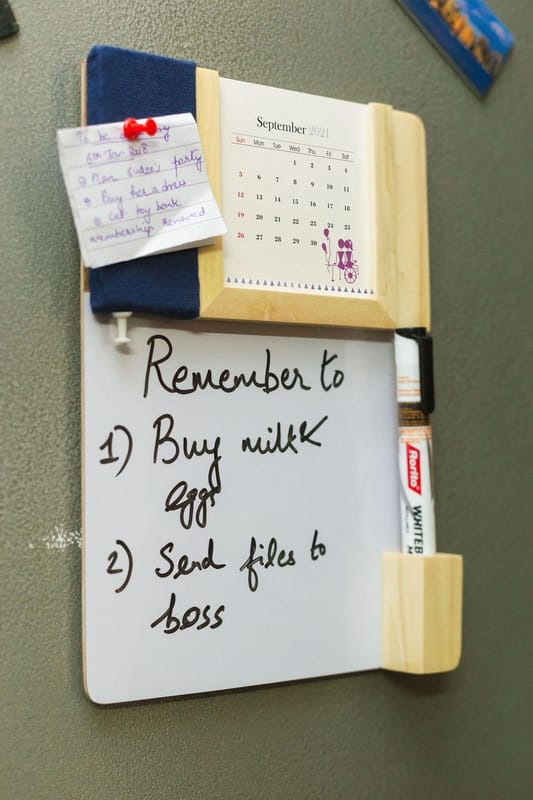 To be
6th Jan 2018
Plan sister's party
Buy her a dress
Get toy bank
membership renewed
September 2021
Sun Mon Tues Wed Thu Fri Sat
1 2 3 4
5 6 7 8 9 10 11
12 13 14 15 16 17 18
19 20 21 22 23 24 25
26 27 28 29 30
Remember to
1) Buy milk
eggs
2) Send files to
boss
Rorito
WHITEB